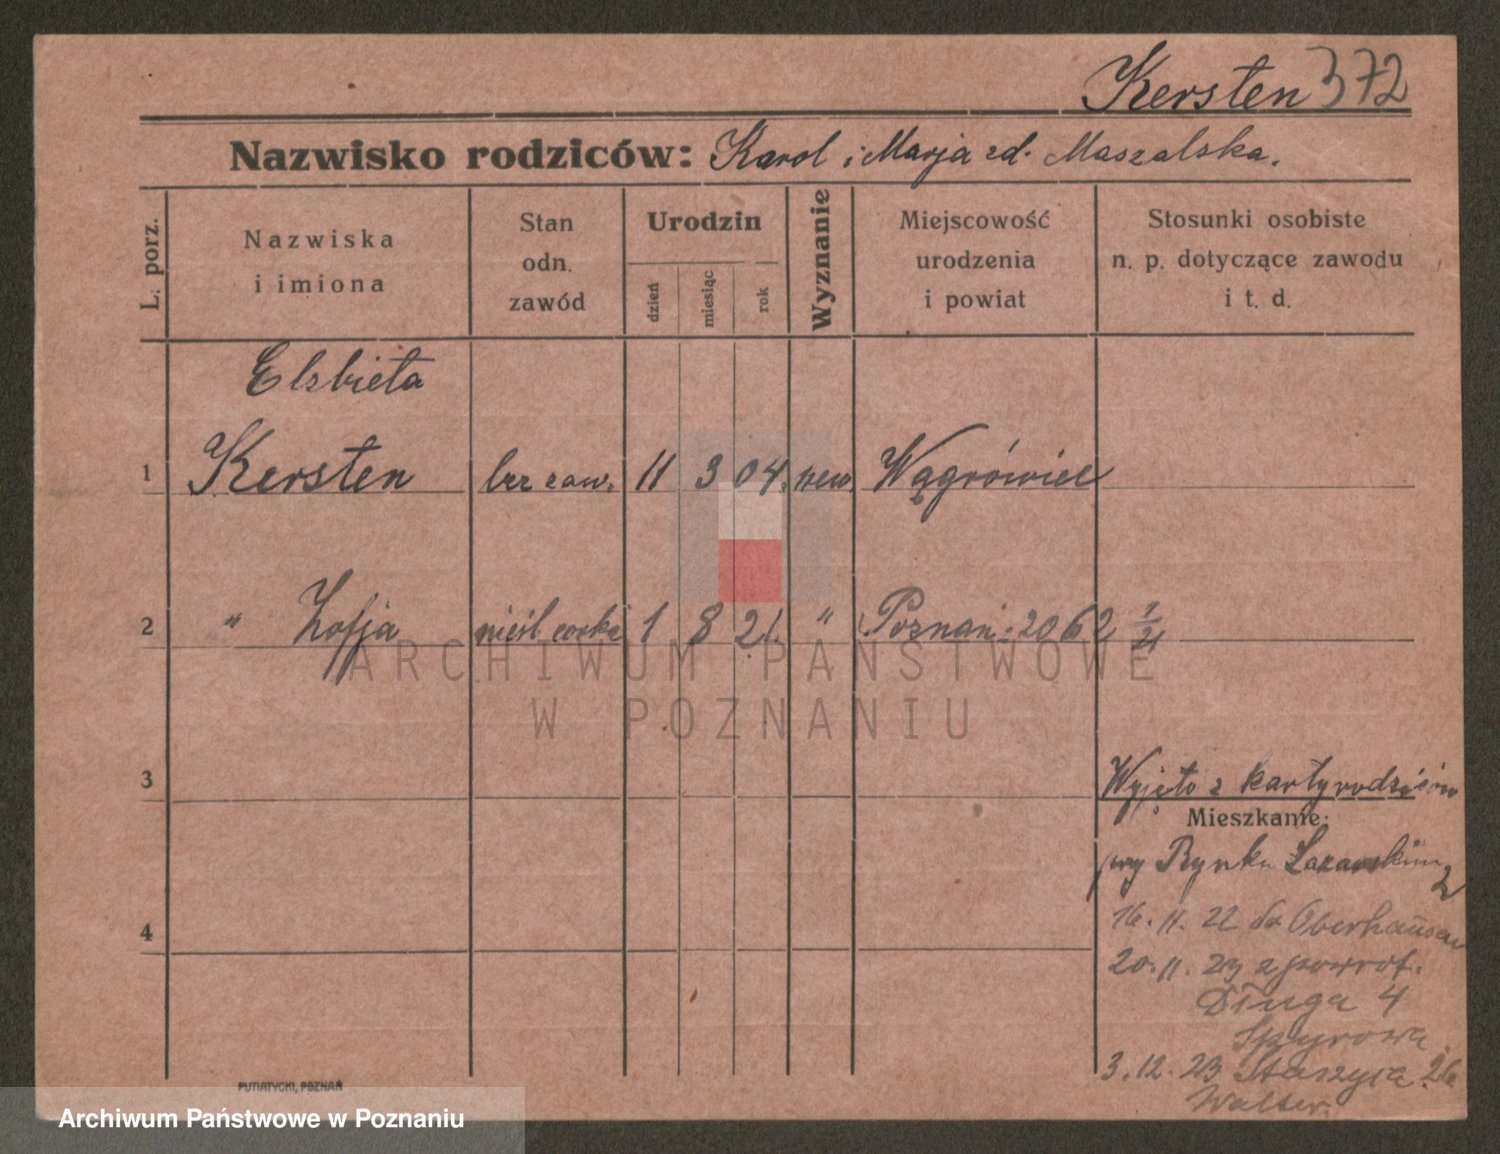 Kersten 372
Nazwisko rodziców: Karol i Marja zd. Maszalska.
L. porz.
Nazwiska
i imiona
Stan
odn.
zawód
Urodzin
dzień
miesiąc
rok
Wyznanie
Miejscowość
urodzenia
i powiat
Stosunki osobiste
n. p. dotyczące zawodu
i t. d.
Elzbieta
1 Kersten bez zaw. 11 3 04. Wągrówiec
2 " Zofja nieśl. corka 1 8 21. " Poznań 2062 1/21
ARCHIWUM PAŃSTWOWE
W POZNANIU
3
Wyjęto z karty rodziców
Mieszkanie:
przy Rynku Łazarskim 2
4
16.11.22 do Oberhausen
20.11.23 z powrot.
Długa 4
3.12.23 Staszyca 26
Walter.
PUTIATYCKI, POZNAŃ
Archiwum Państwowe w Poznaniu